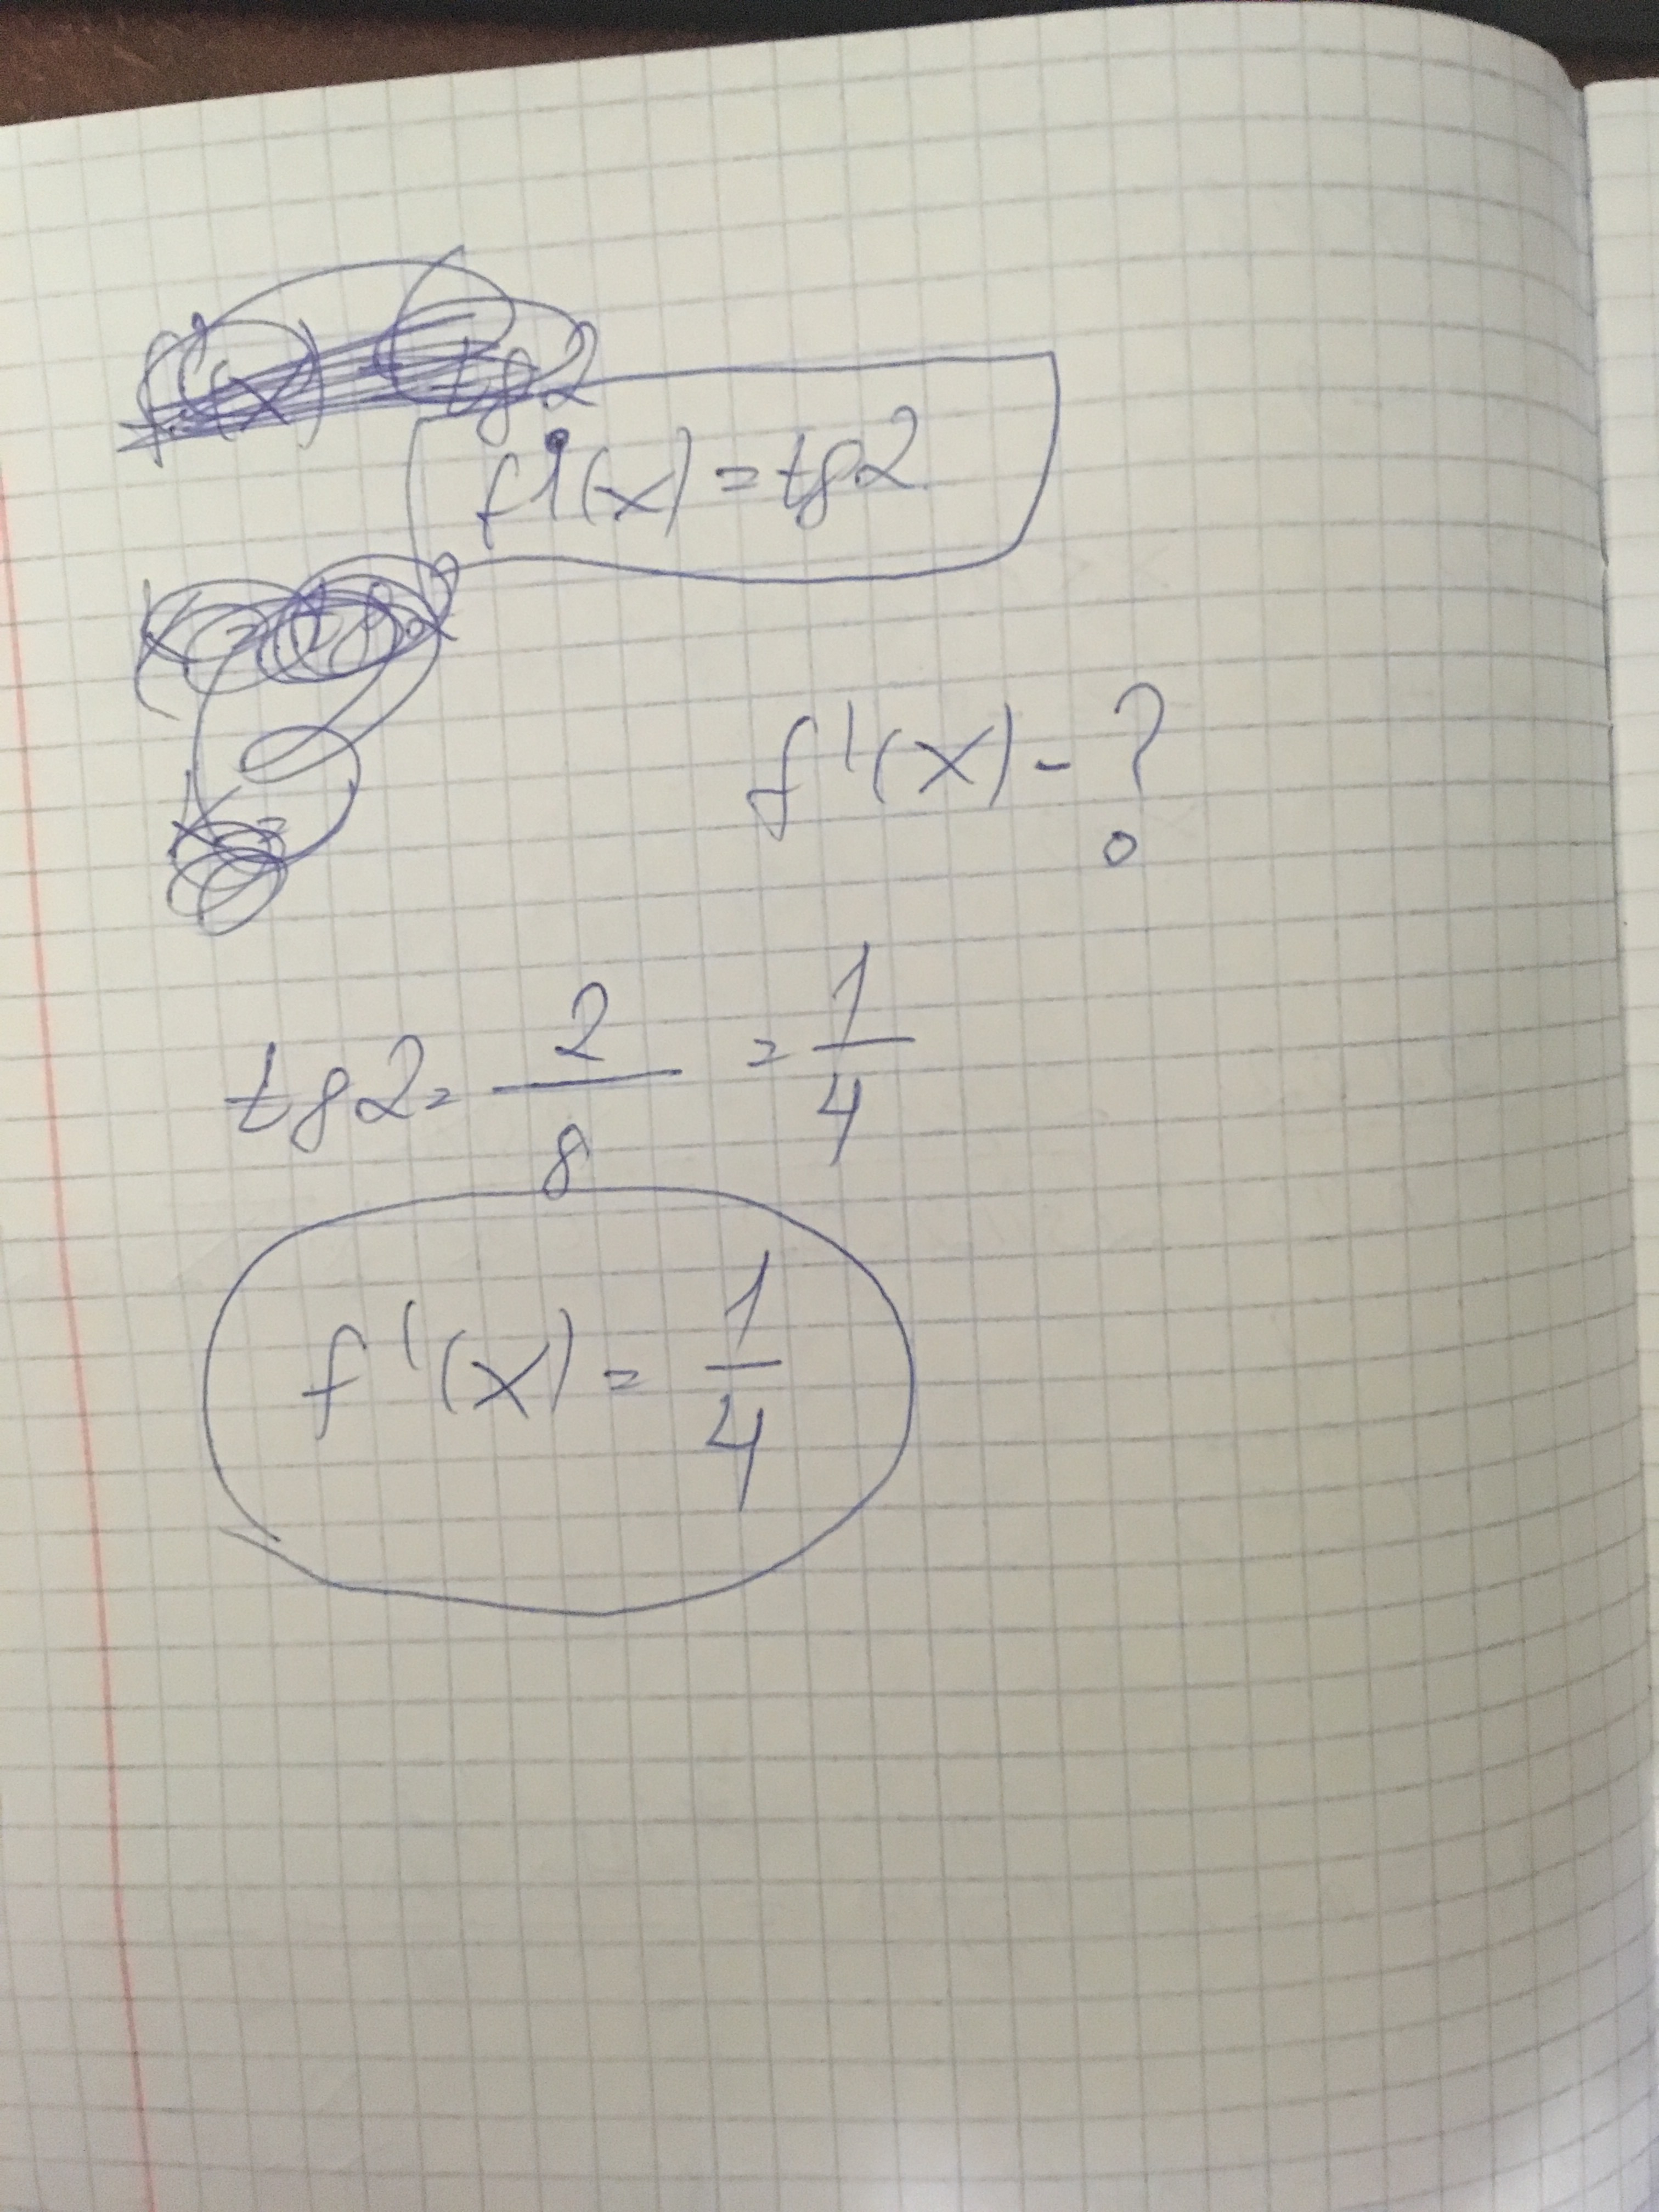 f'(x) = tg2
f'(x) - ?
tg2 = 2/8 = 1/4
f'(x) = 1/4